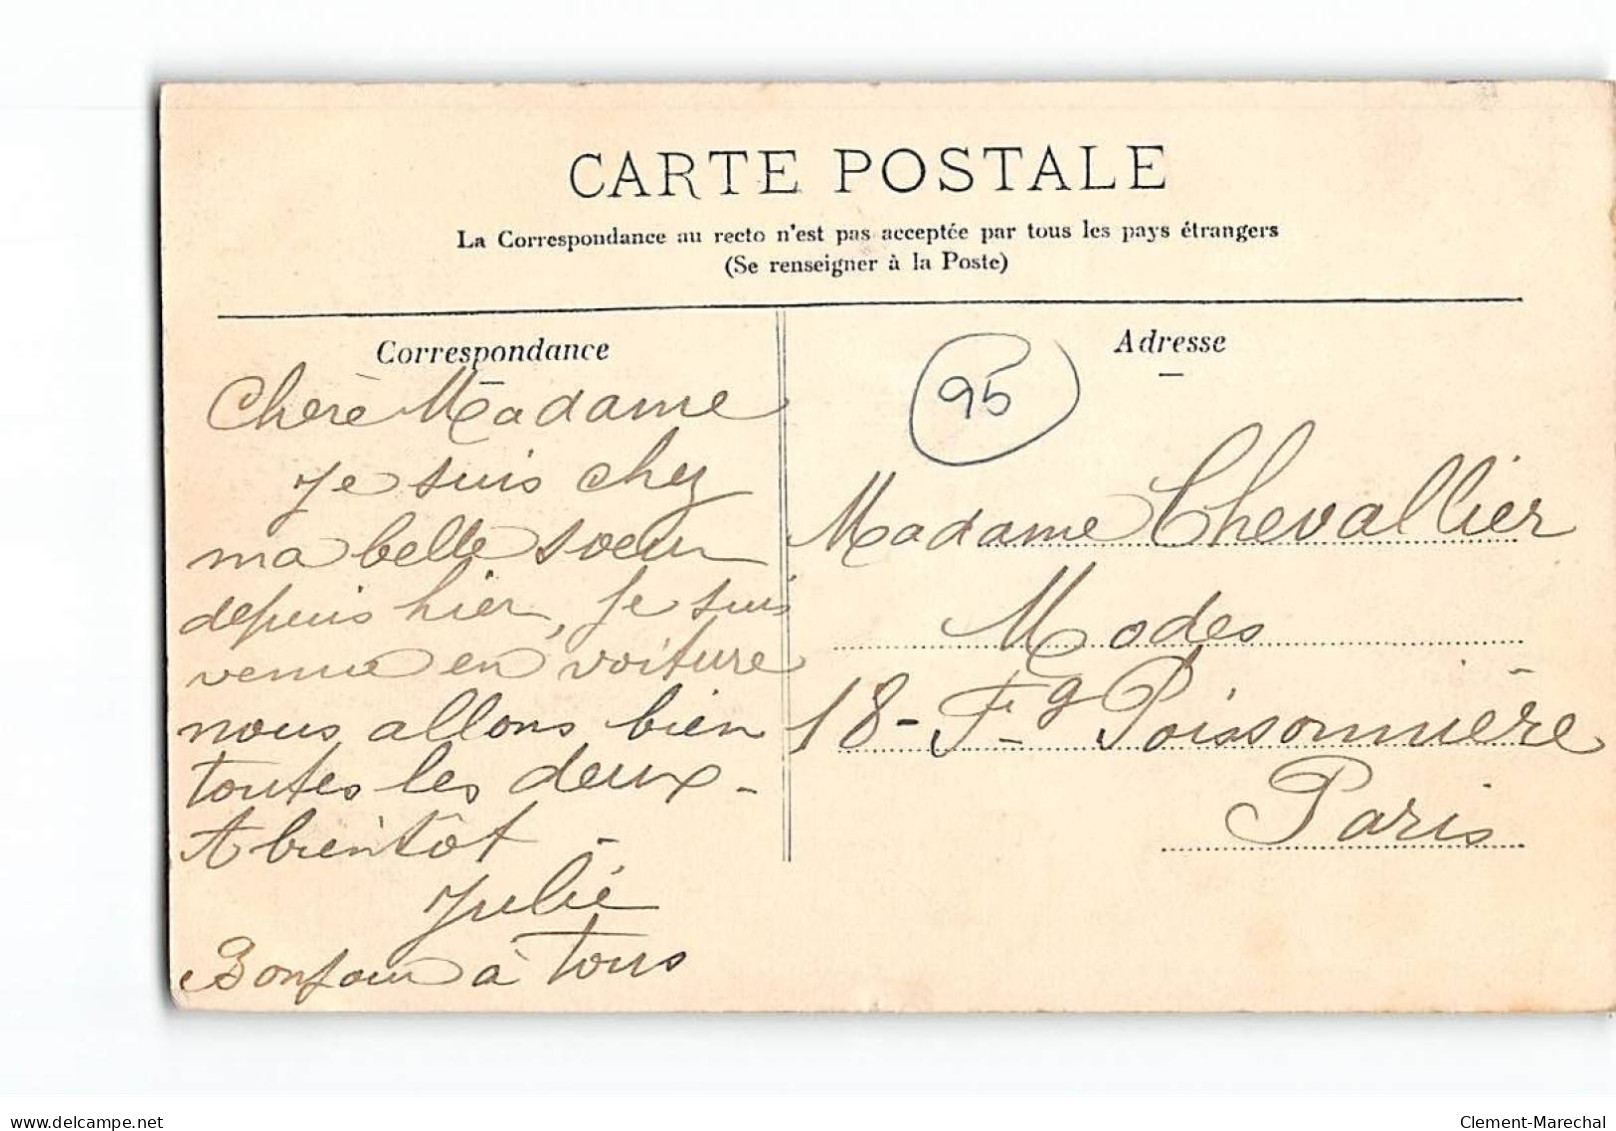 CARTE POSTALE
La Correspondance au recto n'est pas acceptée par tous les pays étrangers
(Se renseigner à la Poste)
Correspondance
Chère Madame
Je suis chez
ma belle soeur
depuis hier, je suis
venue en voiture
nous allons bien
toutes les deux -
A bientôt -
Julie
Bonjour à tous
Adresse
95
Madame Chevallier
Modes
18 - Fg Poissonnière
Paris
delcampe.net
Clement-Marechal